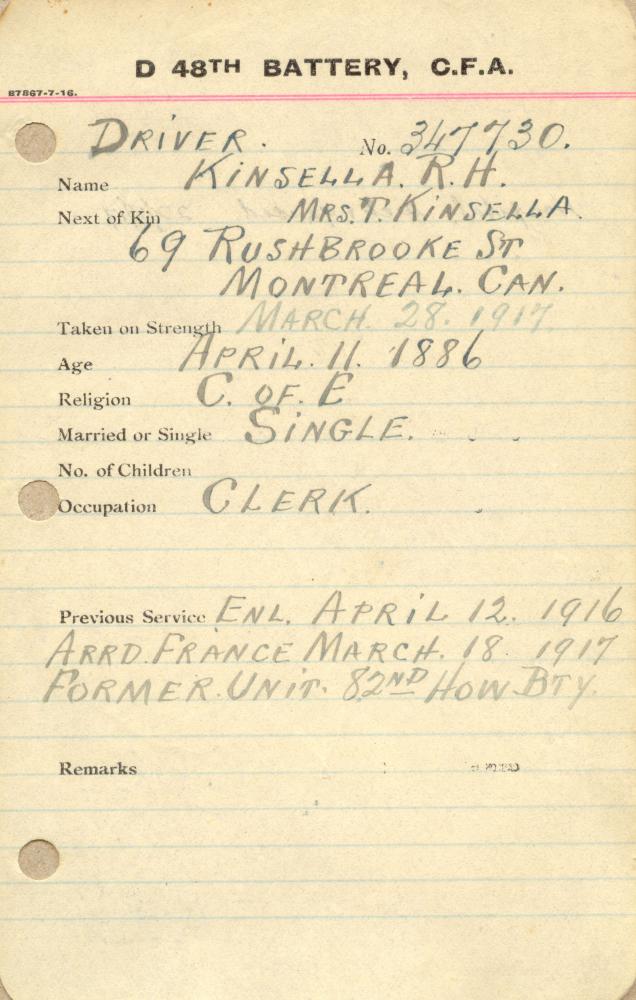 D 48TH BATTERY, C.F.A.
87867-7-16.
DRIVER. No. 347730.
Name KINSELLA. R.H.
Next of Kin MRS. T. KINSELLA.
69 RUSHBROOKE ST
MONTREAL. CAN.
Taken on Strength MARCH. 28. 1917
Age APRIL. 11. 1886
Religion C. OF. E
Married or Single SINGLE.
No. of Children
Occupation CLERK.
Previous Service ENL. APRIL 12. 1916
ARRD. FRANCE MARCH. 18. 1917
FORMER. UNIT. 82ND HOW. BTY.
Remarks